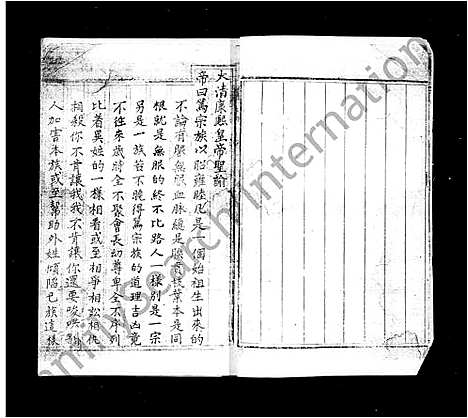 大清康熙皇帝聖諭
帝曰篤宗族以昭雍睦凡是一個始祖生出來的
不論有服無服血脉總是關 枝葉本是同
根就是無服的終不比路人一樣別是一宗
另是一族若不曉得篤宗族的道理吉凶竟
不往來歲時全不聚會長幼尊卑全不序列
比着異姓的一樣相看或至相爭相訟相
相殺你不肯讓我我不肯讓你還要
人加害本族或至幫助外姓傾陷己族這
familysearch international